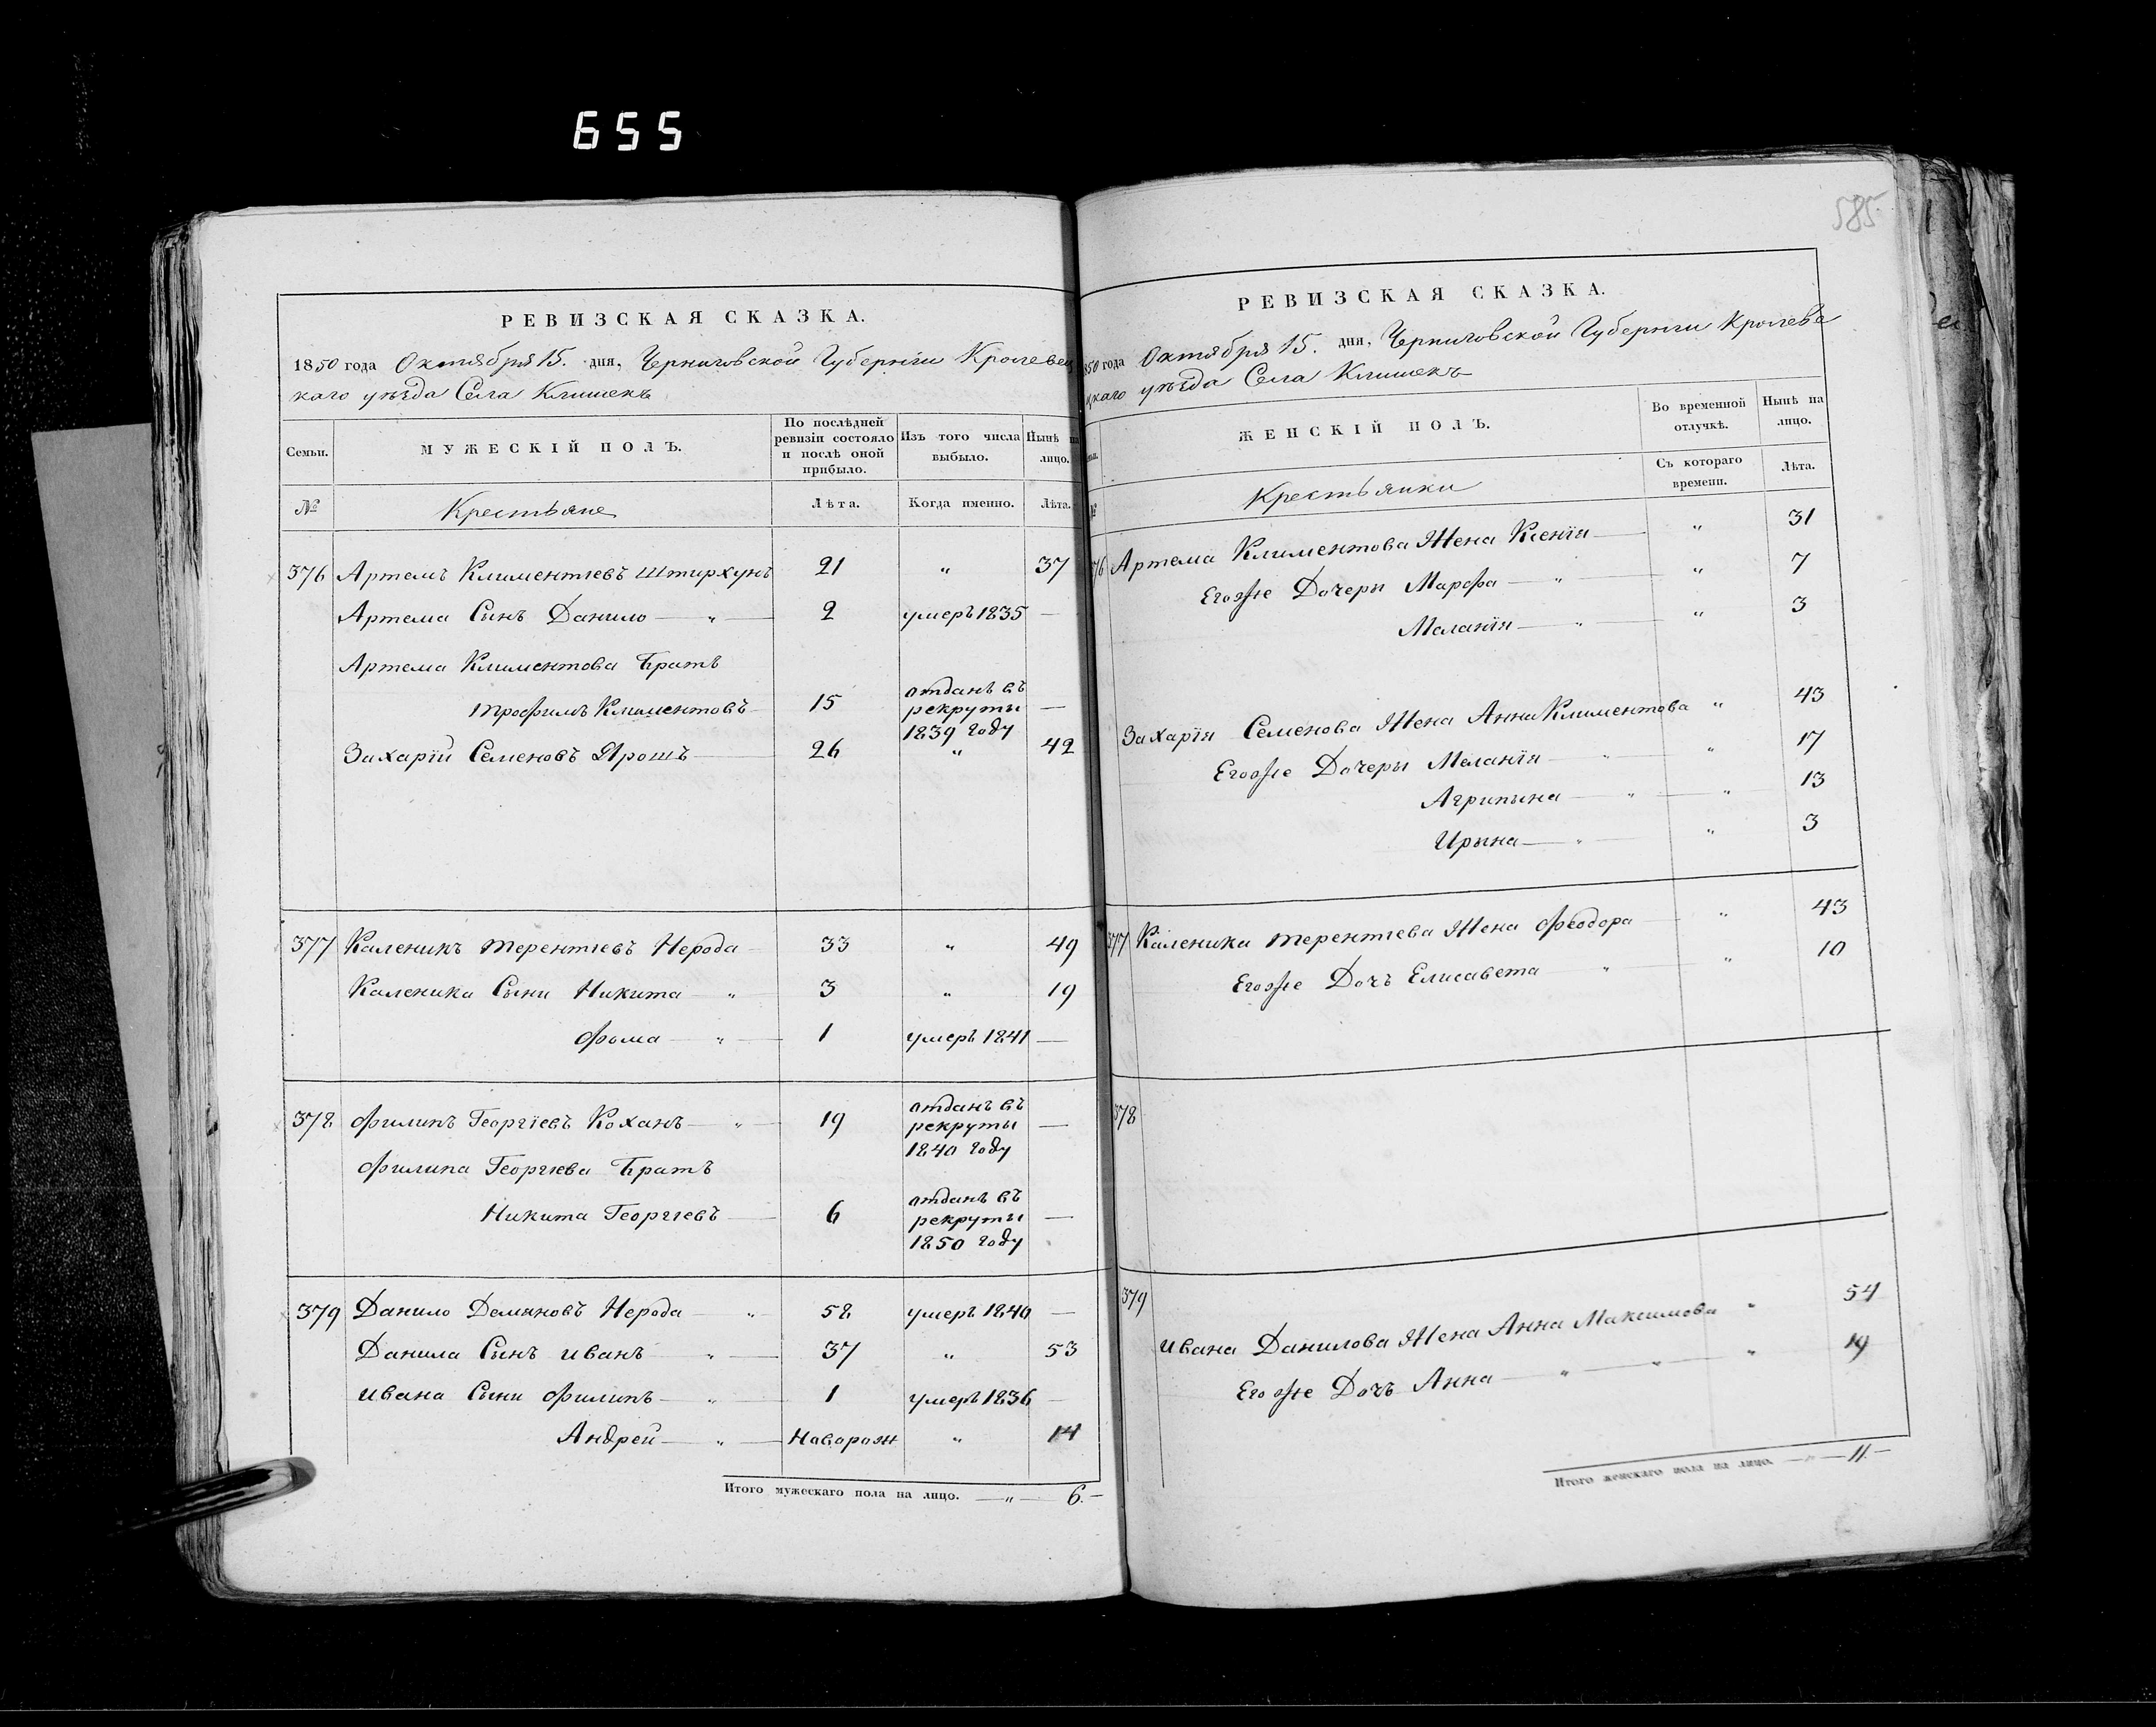 655
585
РЕВИЗСКАЯ СКАЗКА.
1850 года Октября 15. дня, Черниговской Губерніи Кролевец
каго уѣзда Села Клишекъ
Семьи.
МУЖЕСКІЙ ПОЛЪ.
По послѣдней ревизіи состояло и послѣ оной прибыло.
Изъ того числа выбыло.
Нынѣ на лицо.
№
Крестьяне
Лѣта.
Когда именно.
Лѣта.
376 Артемъ Климентіевъ Штирхунъ 21 " 37
Артема Сынъ Данило — " — 2 умеръ 1835 —
Артема Климентова Братъ
Трофимъ Климентовъ — 15 отданъ въ рекруты 1839 году —
Захарій Семеновъ Ярошъ — 26 " 42
377 Каленикъ Терентіевъ Нерода — 33 " 49
Каленика Сыни Никита — " 3 " 19
Фома — " — 1 умеръ 1841 —
378 Филипъ Георгіевъ Коханъ — " — 19 отданъ въ рекруты 1840 году —
Филипа Георгіева Братъ
Никита Георгіевъ — 6 отданъ въ рекруты 1850 году —
379 Данило Демяновъ Нерода — " 58 умеръ 1840 —
Данила Сынъ Иванъ — " — 37 " 53
Ивана Сыни Филипъ — " — 1 умеръ 1836 —
Андрей — " — Наворож " 14
Итого мужескаго пола на лицо. — " — 6. —
РЕВИЗСКАЯ СКАЗКА.
850 года Октября 15. дня, Черниговской Губерніи Кролеве
цкаго уѣзда Села Клишекъ
ЖЕНСКІЙ ПОЛЪ.
Во временной отлучкѣ.
Нынѣ на лицо.
№
Крестьянки
Съ котораго времени.
Лѣта.
76 Артема Климентова Жена Ксенія — " 31
Егоже Дочеры Марфа — " — " 7
Маланія — " — " 3
Захарія Семенова Жена Анна Климентова " 43
Егоже Дочеры Меланія — " " 17
Агрипына — " — " 13
Ирына — " — " 3
377 Каленика Терентіева Жена Феодора — " 43
Егоже Дочъ Елисавета " " 10
378
379
Ивана Данилова Жена Анна Максимова " 54
Егоже Дочъ Анна — " — " — " 19
Итого женскаго пола на лицо. — " — 11. —